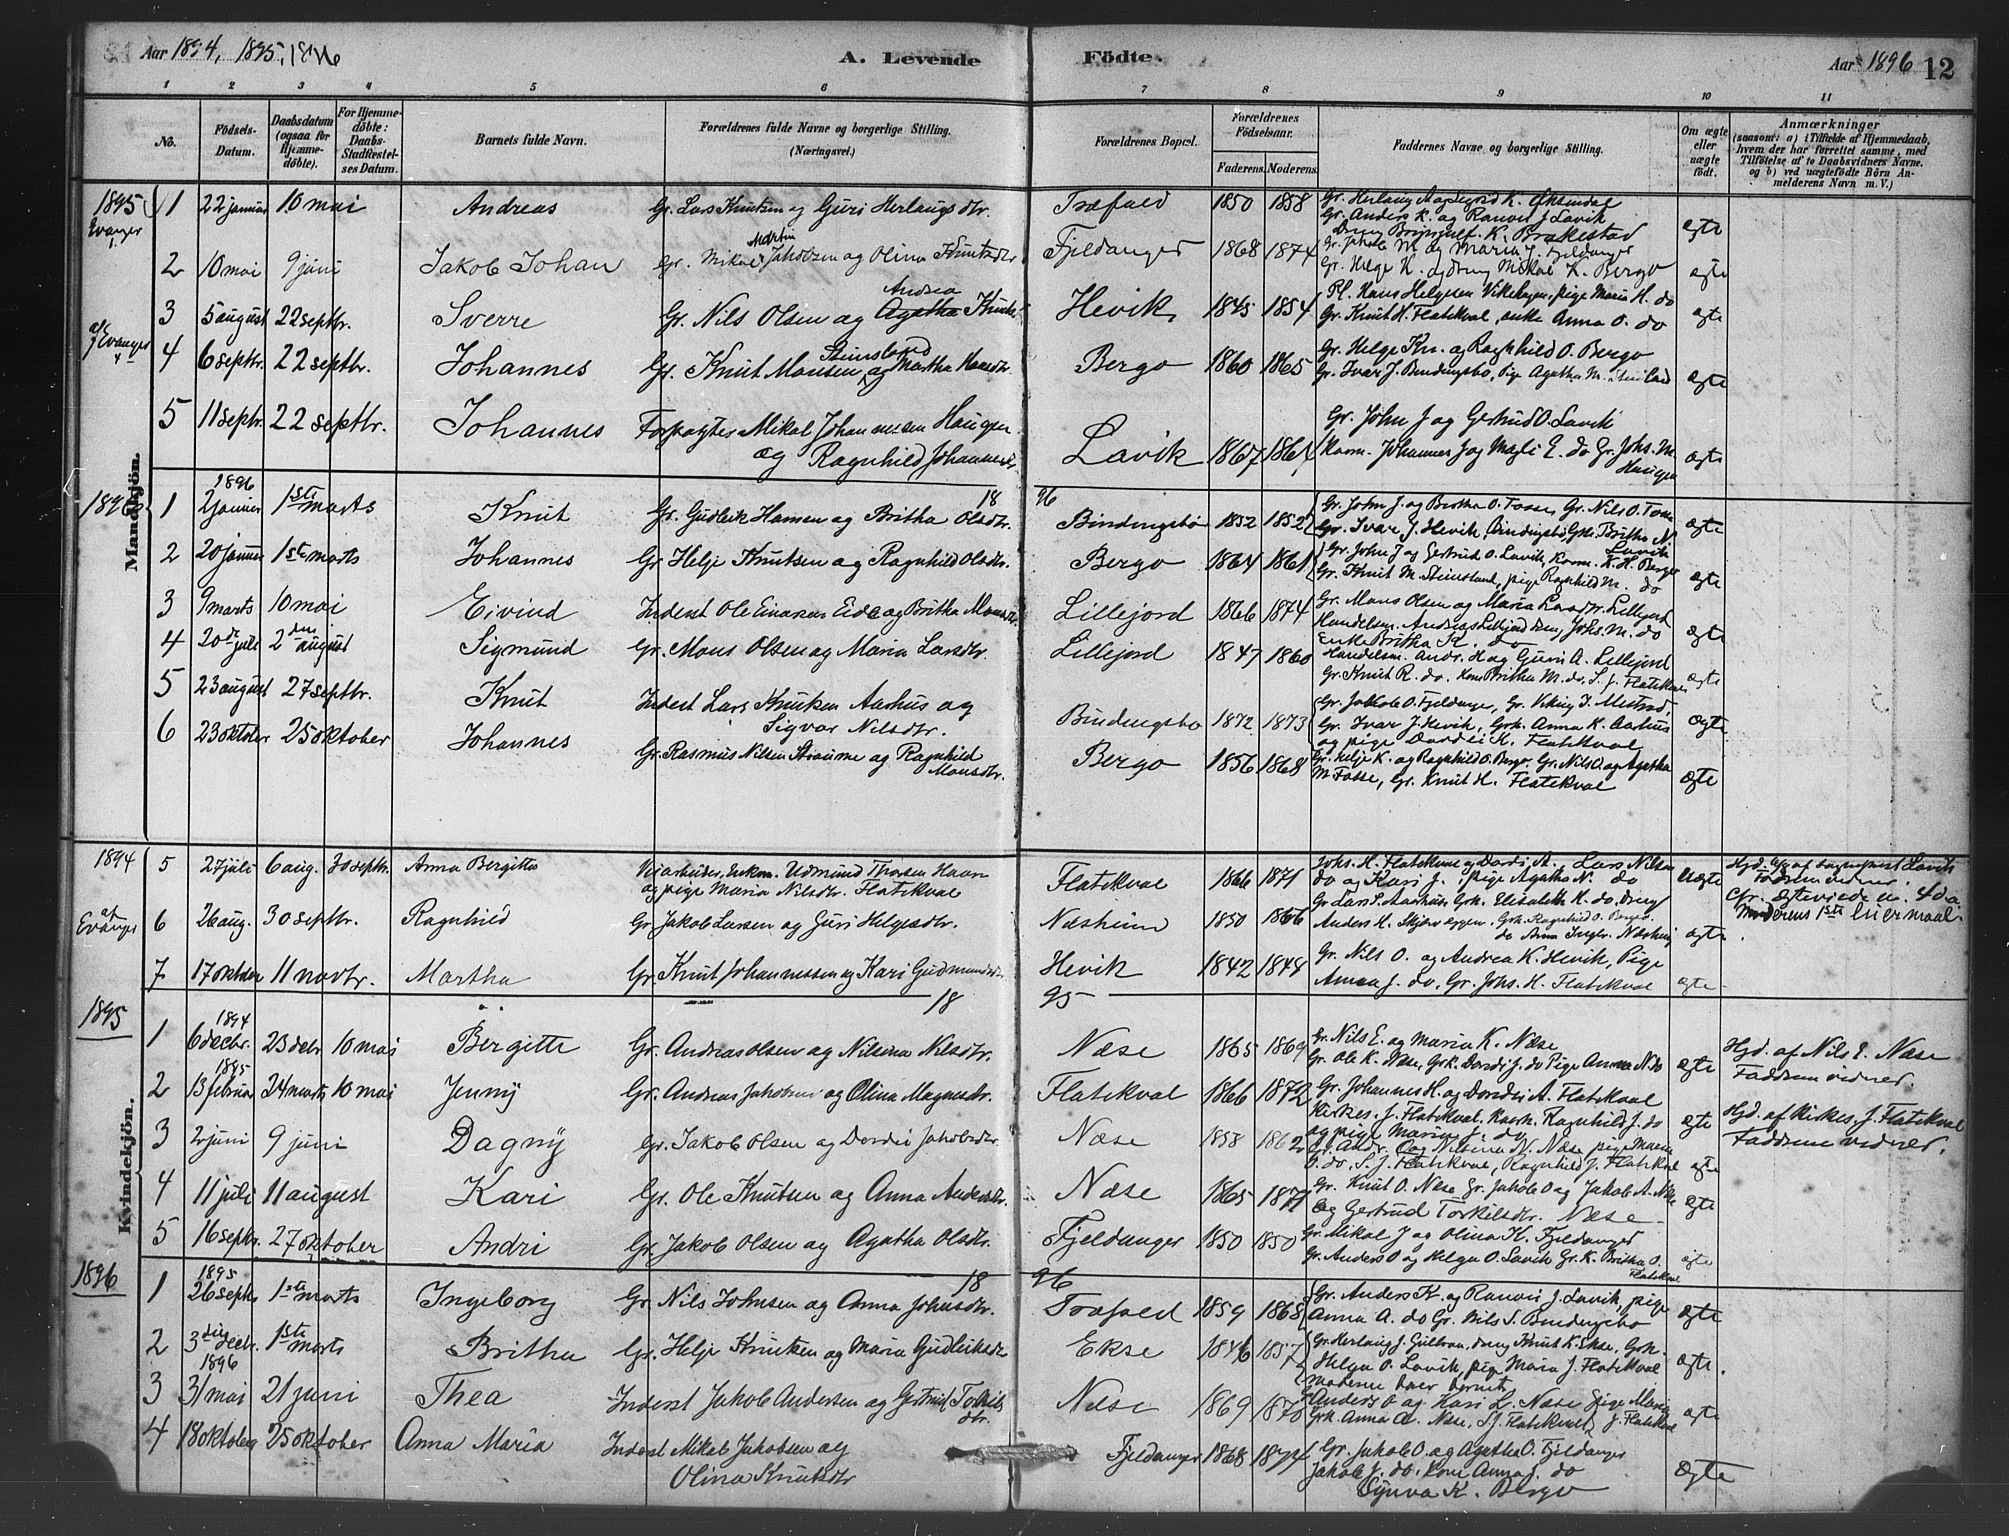 Aar 1894, 1895, 1896
A. Levende Födte.
Aar 1896 12
1 2 3 4 5 6 7 8 9 10 11
No.
Födsels-Datum.
Daabsdatum (ogsaa for Hjemmedöbte).
For Hjemmedöbte: Daabs-Stadfæstelses Datum.
Barnets fulde Navn.
Forældrenes fulde Navne og borgerlige Stilling. (Næringsvei.)
Forældrenes Bopæl.
Forældrenes Födselsaar.
Faderens. Moderens.
Faddernes Navne og borgerlige Stilling.
Om ægte eller uægte födt.
Anmærkninger
(saasom: a) i Tilfælde af Hjemmedaab, hvem der har forrettet samme, med Tilföielse af to Daabsvidners Navne. og b) ved uægtefödte Börn Anmelderens Navn m. V.)
Mandkjön.
1895 1 22 januar 10 mai Andreas Gr. Lars Knutsen og Guri Herlaugsdtr. Træfald 1850 1858
Gr. Anders K. og Ranvei J. Lavik ægte
Evanger 2 10 mai 9 juni Jakob Johan Gr. Mikal Martin Jakobsen og Olina Knutsdtr Fjeldanger 1868 1874 Gr. Jakob M og Maria J. Fjeldanger
Gr. Helge K. og Dreng Mikal K. Bergo ægte
3 5 august 22 septbr. Sverre Gr. Nils Olsen og Andrea Agatha Knuts Hevik 1845 1854
Gr. Knut H. Flatekval, enke Anna O. do ægte
af Evanger 4 6 septbr. 22 septbr. Johannes Gr. Knut Monsen Steinsland og Martha Hansdtr. Bergo 1860 1865 Gr. Helge Kn. og Ragnhild O. Bergo
Gr. Ivar J. Bindingsbø, Pige Agatha M. ægte
5 11 septbr. 22 septbr. Johannes Forpagter Mikal Johannessen Haugen og Ragnhild Johannesdtr. Lavik 1867 1861 Gr. John J og Gertrud O. Lavik
Johannes J og Magli E. do Gr. Johs. M. Haugen ægte
1896 18 96
1 1896 2 januar 1ste marts Knut Gr. Gudleik Hansen og Britha Olsdtr. Bindingsbø 1852 1852 Gr. John J. og Britha O. Fosse, Gr. Nils O. Fosse
Gr. Ivar J. Hevik, Bindingsbø, Grk. Britha N. Lavik ægte
2 20 januar 1ste marts Johannes Gr. Helje Knutsen og Ragnhild Olsdtr. Bergo 1864 1861 Gr. John J og Gertrud O. Lavik, K. H. Bergo
Gr. Knut M. Steinsland, pige Ragnhild M. do ægte
3 9 marts 10 mai Eivind Inderst Ole Einarsen Eide og Britha Monsdtr. Lillejord 1866 1874 Gr. Mons Olsen og Maria Larsdtr. Lillejord
Handelsm. Andreas Lillejord, Johs. M. do
Enke Britha K. do ægte
4 20de juli 2den august Sigmund Gr. Mons Olsen og Maria Larsdtr. Lillejord 1847 1860 Handelsm. Andr. H og Guri A. Lillejord
Gr. Knut R. do. Kone Britha M. do, S. J. Flatekval ægte
5 23 august 27 septbr. Knut Inderst Lars Knutsen Aarhus og Sigvor Nilsdtr. Bindingsbø 1872 1873 Gr. Jakob O. Fjeldanger, Gr. Viking J. Mestad
Gr. Ivar J. Hevik, Grk. Anna K. Aarhus
og pige Dordei H. Flatekval ægte
6 23 oktober 25 oktober Johannes Gr. Rasmus Nilsen Straume og Ragnhild Monsdtr. Bergo 1856 1868 Gr. Helje K. og Ragnhild O. Bergo, Gr. Nils O. og Agatha
M. Fosse, Gr. Knut H. Flatekval ægte
Kvindekjön.
1894 5 27 juli 6 aug. 30 septbr. Anna Bergitte Veiarbeider, Udmund Thorsen Haan
og pige Maria Nilsdtr. Flatekval Flatekval 1866 1871 Johs. H. Flatekval og Dordi A., Lars Nilsen
do og Kari J. pige Agatha N. do Uægte
Faddrene vidner.
Moderens 1ste leiermaal.
af Evanger 6 26 aug. 30 septbr. Ragnhild Gr. Jakob Larsen og Guri Helgesdtr. Næsheim 1850 1866 Gr Lars S. Aarhus, Grk. Elisabeth K. do, Dreng
Anders H. Skjervheggen, Grk. Ragnhild O. Bergo ægte
7 17 oktober 11 novbr. Martha Gr. Knut Johannessen og Kari Gudmundsdtr Hevik 1842 1848 Gr. Nils O. og Andrea K. Hevik, Pige
Anna J. do, Gr. Johs. H. Flatekval ægte
1895 18 95
1 1894 6 decbr. 23 decbr 10 mai Bergitte Gr. Andreas Olsen og Nilsina Nilsdtr. Næse 1865 1869 Gr. Nils E. og Maria K. Næse
Gr. Ole K. Næse, Grk. Dordei J. do Pige Anna N. do ægte
Hjd. af Nils E. Næse
Faddrene vidner.
2 1895 13 februar 24 marts 10 mai Jenny Gr. Andreas Jakobsen og Olina Magnusdtr. Flatekval 1866 1872 Gr. Johannes H. og Dordei A. Flatekval
Kirkes. J. Flatekval, Ragnhild J. do
og pige Maria J. do ægte
Hjd. af Kirkes. J. Flatekval
Faddrene vidner.
3 2 juni 9 juni Dagny Gr. Jakob Olsen og Dordei Jakobsdtr. Næse 1858 1862 Gr. Andr. O og Nilsina N. Næse pige Maria
do. S. J. Flatekval, Ragnhild J. Flatekval ægte
4 11 juli 11 august Kari Gr. Ole Knutsen og Anna Andersdtr. Næse 1865 1871 Gr. Knut O. Næse Gr. Jakob O og Jakob A. Næse
og Gertrud Torkilsdtr. Næse ægte
5 16 septbr. 27 oktober Andri Gr. Jakob Olsen og Agatha Olsdtr. Fjeldanger 1850 1850 Gr. Mikal J og Olina K. Fjeldanger
Gr. Anders O og Helga O. Lavik Gr. K. Britha O. Flatekval ægte
1896 18 96
1 1895 26 septbr 1ste marts Ingeborg Gr. Nils Johnsen og Anna Johnsdtr. Træfald 1859 1868 Gr. Anders K. og Ranvei J. Lavik, pige
Anna A. do Gr. Nils S. Bindingsbø ægte
2 3die decbr. 1ste marts Britha Gr. Helje Knutsen og Maria Gudleiksdtr Ekse 1846 1857 Gr. Herlaug J. Gullbraa, dreng Knut K. Ekse, Grk.
Helga O. Lavik, pige Maria J. Flatekval
Moderen bar barnet ægte.
3 1896 31 mai 21 juni Thea Inderst Jakob Andersen og Gertrud Torkilsdtr. Næse 1869 1870 Anders O og Kari L. Næse Pige Maria
Grk. Anna A. Næse, S J Flatekval ægte
4 18 oktober 25 oktober Anna Maria Inderst Mikal Jakobsen og
Olina Knutsdtr Fjeldanger 1868 1874 Gr. Jakob O. og Agatha O. Fjeldanger
Jakob J. do. Kone Anna J. do
Synva K. Bergo ægte